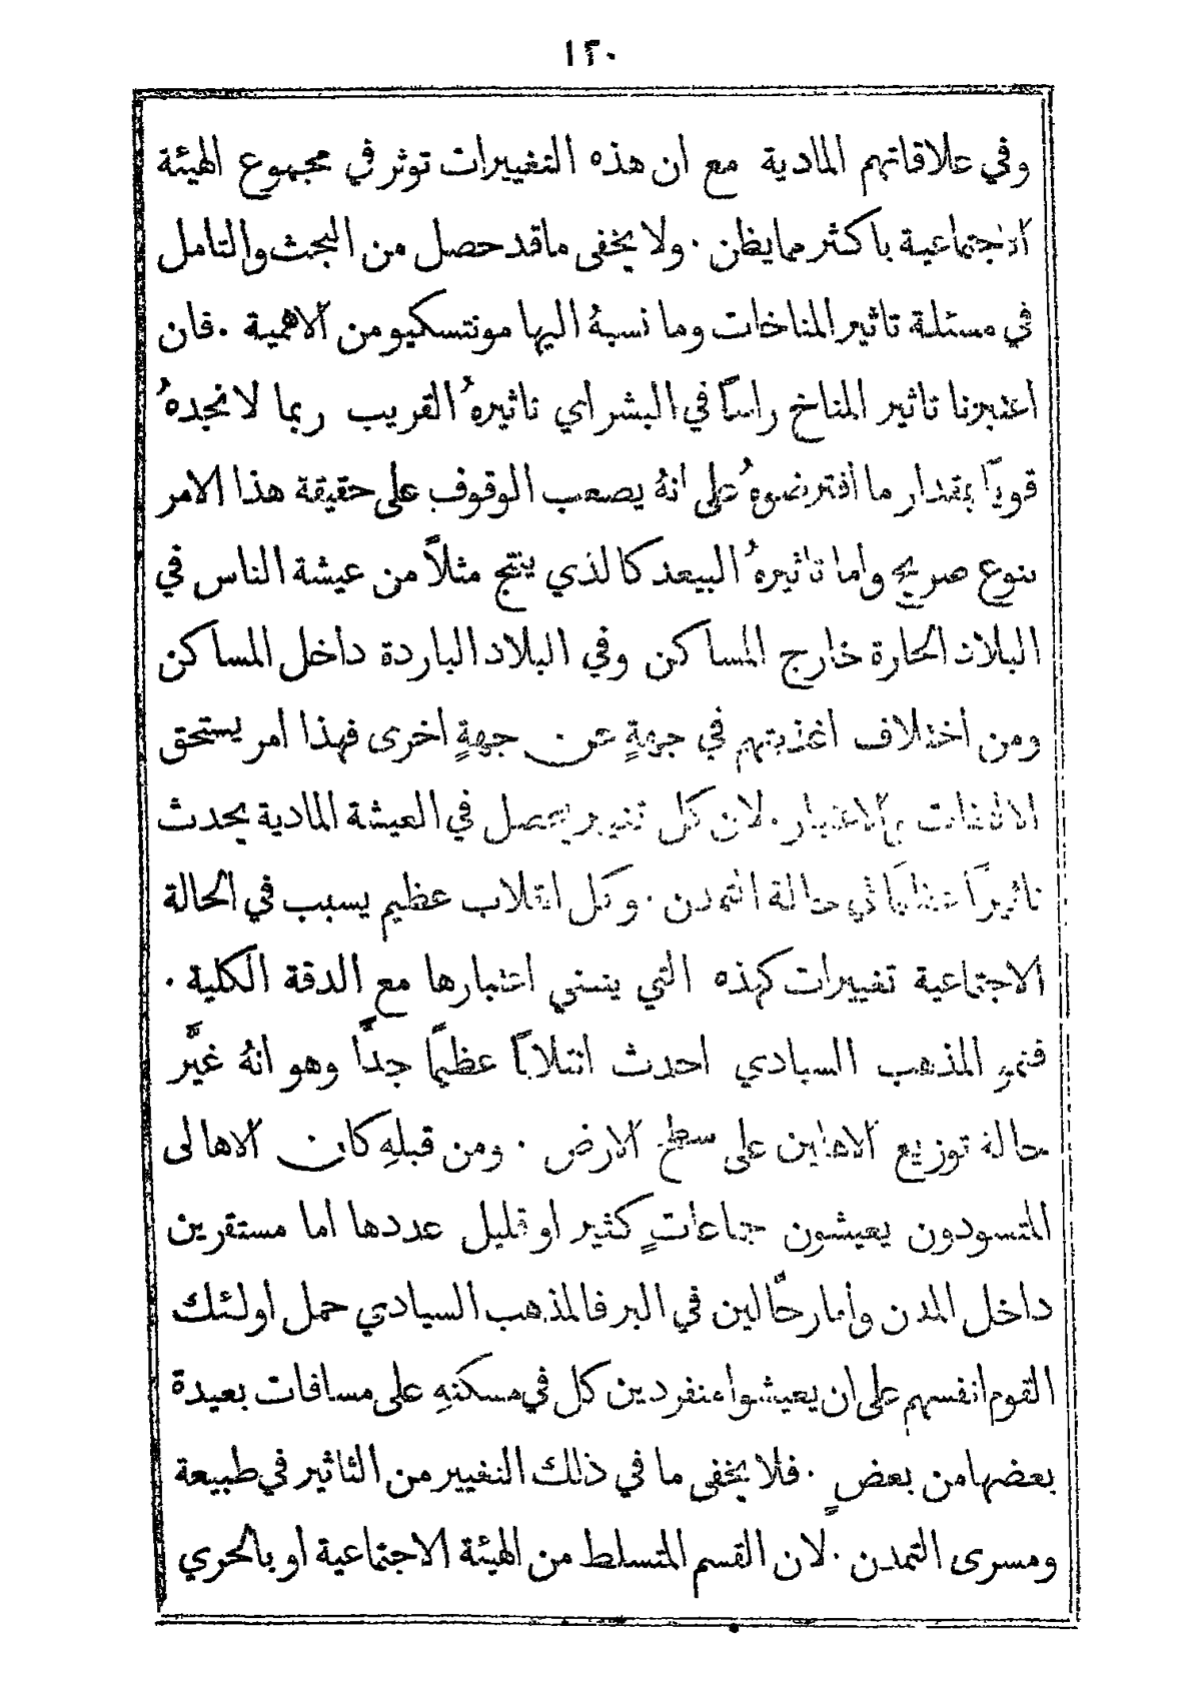 ١٢٠
وفي علاقاتهم المادية مع ان هذه التغييرات توثر في مجموع الهيئة
الاجتماعية باكثر مما يظن ٠ ولا يخفى ما قد حصل من البحث والتامل
في مسئلة تاثير المناخات وما نسبهُ اليها مونتسكيو من الاهمية ٠ فان
اعتبرنا تاثير المناخ راسًا في البشر اي تاثيرهُ القريب ربما لا نجدهُ
قويًا بمقدار ما افترضوهُ على انهُ يصعب الوقوف على حقيقة هذا الامر
بنوع صريح واما تاثيرهُ البيعد كالذي ينتج مثلاً من عيشة الناس في
البلاد الحارة خارج المساكن وفي البلاد الباردة داخل المساكن
ومن اختلاف اغذيتهم في جهةٍ عن جهةٍ اخرى فهذا امر يستحق
الالتفات والاعتبار ٠ لان كل تغيير يحصل في العيشة المادية يحدث
تاثيرًا عظيمًا في حالة التمدن ٠ وكل انقلاب عظيم يسبب في الحالة
الاجتماعية تغييرات كهذه التي ينبغي اعتبارها مع الدقة الكلية ٠
فنمو المذهب السيادي احدث انقلابًا عظيمًا جدًّا وهو انهُ غيَّر
حالة توزيع الاهلين على سطح الارض ٠ ومن قبلهِ كان الاهالى
المتسودون يعيشون جماعاتٍ كثير او قليل عددها اما مستقرين
داخل المدن وأما رحَّالين في البر فالمذهب السيادي حمل اولئك
القوم انفسهم على ان يعيشوا منفردين كل في مسكنهِ على مسافات بعيدة
بعضها من بعضٍ ٠ فلا يخفى ما في ذلك التغيير من التاثير في طبيعة
ومسرى التمدن ٠ لان القسم المتسلط من الهيئة الاجتماعية او بالحري